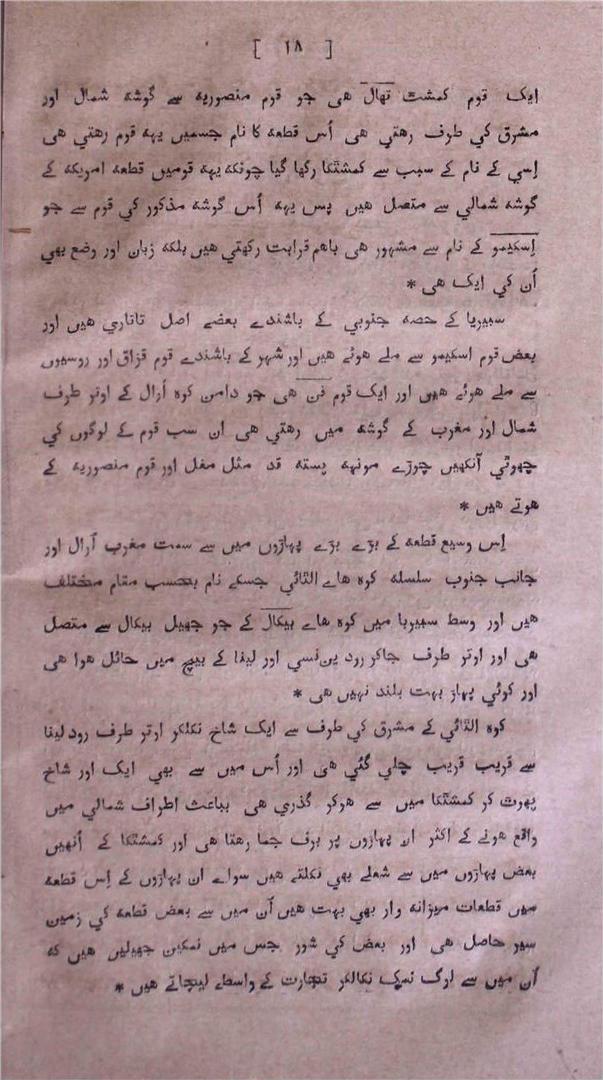 [ ١٨ ]
ایک قوم کمشت تھال هی جو قوم منصوریه سے گوشه شمال اور
مشرق کي طرف رهتي هی اُس قطعه کا نام جسمیں یهه قوم رهتي هی
اِسي کے نام کے سبب سے کمشتکا رکها گیا چونکه یهه قومیں قطعه امریکه کے
گوشه شمالي سے متصل هیں پس یهه اُس گوشه مذکور کي قوم سے جو
اِسکیمو کے نام سے مشهور هی باهم قرابت رکهتي هیں بلکه زبان اور وضع بهي
اُن کي ایک هی *
سیبریا کے حصه جنوبي کے باشندے بعضے اصل تاتاري هیں اور
بعض قوم اسکیمو سے ملے هوئے هیں اور شهر کے باشندے قوم قزاق اور روسیوں
سے ملے هوئے هیں اور ایک قوم فن هی جو دامن کوه اُرال کے اوتر طرف
شمال اور مغرب کے گوشه میں رهتي هی ان سب قوم کے لوگوں کي
چهوٹي آنکهیں چوڑے مونهه پسته قد مثل مغل اور قوم منصوریه کے
هوتے هیں *
اِس وسیع قطعه کے بڑے بڑے پهاڑوں میں سے سمت مغرب اُرال اور
جانب جنوب سلسله کوه هاے التائي جسکے نام بحسب مقام مختلف
هیں اور وسط سیبریا میں کوه هاے بیکال کے جو جهیل بیکال سے متصل
هی اور اوتر طرف جاکر رود ین‌نسي اور لینا کے بیچ میں حائل هوا هی
اور کوئي پهاڑ بهت بلند نهیں هی *
کوه التائي کے مشرق کي طرف سے ایک شاخ نکلکر اوتر طرف رود لینا
سے قریب قریب چلي گئي هی اور اُس میں سے بهي ایک اور شاخ
پهوٹ کر کمشٹکا میں سے هوکر گذري هی بباعث اطراف شمالي میں
واقع هونے کے اکثر ان پهاڑوں پر برف جما رهتا هی اور کمشتکا کے اُنهیں
بعض پهاڑوں میں سے شعلے بهي نکلتے هیں سواے ان پهاڑوں کے اِس قطعه
میں قطعات میزانه وار بهي بهت هیں اُن میں سے بعض قطعه کي زمین
سیر حاصل هی اور بعض کي شور جس میں نمکین جهیلیں هیں که
اُن میں سے لوگ نمک نکالکر تجارت کے واسطے لیجاتے هیں *